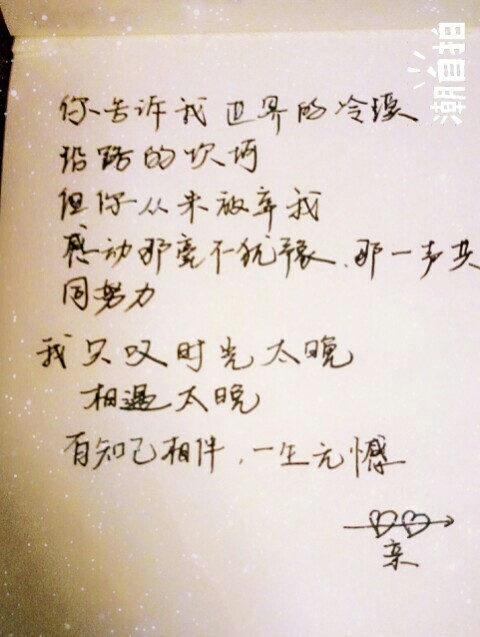 潮自拍
你告诉我世界的冷漠
沿路的坎坷
但你从未放弃我
感动那毫不犹豫、那一声共
同努力
我只叹时光太晚
相遇太晚
有知己相伴，一生无憾
亲